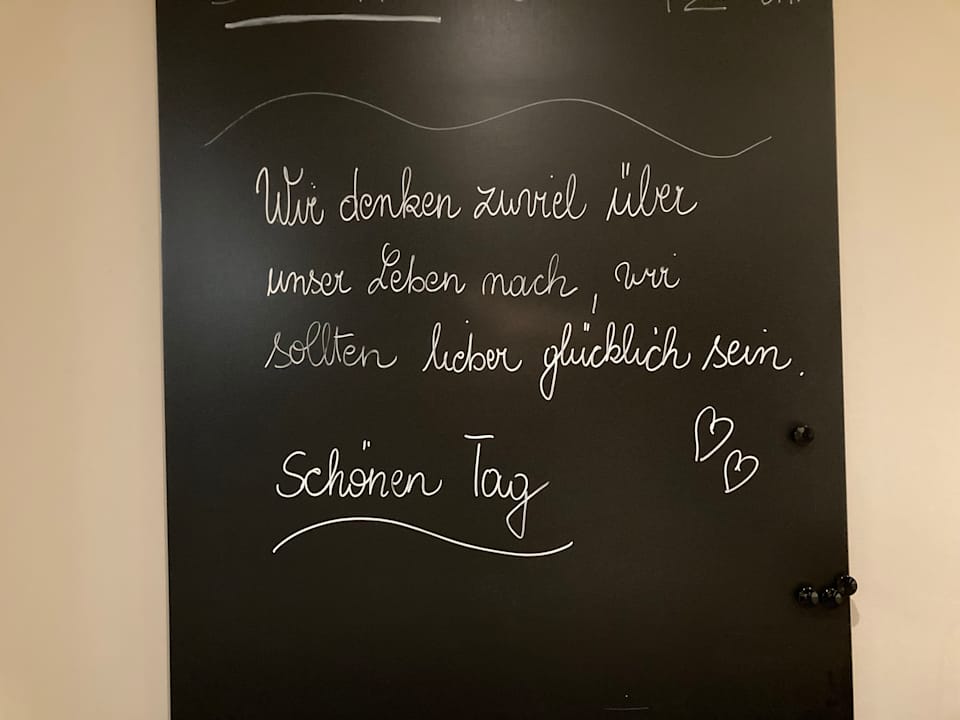 Wir denken zuviel über
unser Leben nach, wir
sollten lieber glücklich sein.
Schönen Tag